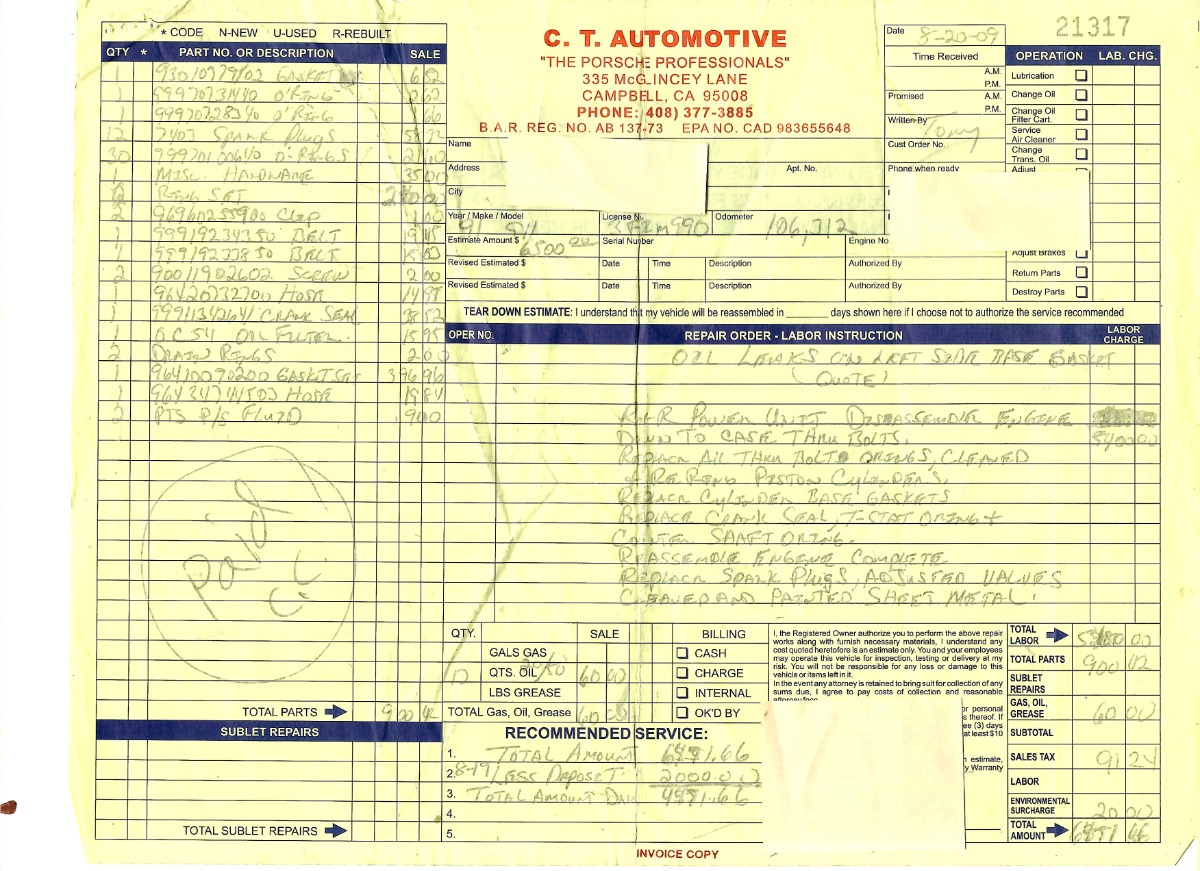 * CODE N-NEW U-USED R-REBUILT
QTY * PART NO. OR DESCRIPTION SALE
1 GASKET 6
1 99970731440 O'RING 62
1 99970728340 O'RING 66
12 7403 SPARK PLUGS 58
30 99970100640 O-RINGS 21 60
1 MISC. HARDWARE 35 00
RING SET
2 96960255900 CLIP 1 00
1 99919234350 BELT 19
1 99919233850 BELT
2 90011902602 SCREW 2 00
1 96420732700 HOSE 14 98
1 99911342641 CRANK SEAL 38 52
1 OC54 OIL FILTER. 15 95
2 DRAIN RINGS 2 00
1 96410090200 GASKET SET 396 96
1 96434744503 HOSE 19 84
2 PTS P/S FLUID 9 00
Paid
C.C.
TOTAL PARTS 900 42
SUBLET REPAIRS
TOTAL SUBLET REPAIRS
C. T. AUTOMOTIVE
"THE PORSCHE PROFESSIONALS"
335 McGLINCEY LANE
CAMPBELL, CA 95008
PHONE: (408) 377-3885
B.A.R. REG. NO. AB 137-73 EPA NO. CAD 983655648
21317
Date 8-20-09
Time Received
A.M.
P.M.
Promised A.M.
P.M.
Written By Tony
Cust Order No.
Phone when ready
OPERATION LAB. CHG.
Lubrication
Change Oil
Change Oil Filter Cart.
Service Air Cleaner
Change Trans. Oil
Adjust
Adjust Brakes
Return Parts
Destroy Parts
Name
Address Apt. No.
City
Year / Make / Model 91 911
License No. 990
Odometer 106,312
Estimate Amount $ 6500 00
Serial Number
Engine No
Revised Estimated $ Date Time Description Authorized By
Revised Estimated $ Date Time Description Authorized By
TEAR DOWN ESTIMATE: I understand that my vehicle will be reassembled in ______ days shown here if I choose not to authorize the service recommended
OPER NO. REPAIR ORDER - LABOR INSTRUCTION LABOR CHARGE
OIL LEAKS ON LEFT SIDE BASE GASKET
(QUOTE)
R+R POWER UNIT DISASSEMBLE ENGINE
DOWN TO CASE THRU BOLTS. 5400 00
REPLACE ALL THRU BOLTS ORINGS, CLEANED
& RE RING PISTON CYLINDERS,
REPLACE CYLINDER BASE GASKETS
REPLACE CRANK SEAL, T-STAT ORING +
COUNTER SHAFT ORING.
REASSEMBLE ENGINE COMPLETE
REPLACE SPARK PLUGS, ADJUSTED VALVES
CLEANED AND PAINTED SHEET METAL.
QTY. SALE BILLING
GALS GAS CASH
12 QTS. OIL 20/50 60 00 CHARGE
LBS GREASE INTERNAL
TOTAL Gas, Oil, Grease 60 00 OK'D BY
RECOMMENDED SERVICE:
1. TOTAL AMOUNT
2. 8-19 LESS DEPOSIT 2000.00
3. TOTAL AMOUNT DUE
4.
5.
I, the Registered Owner authorize you to perform the above repair
works along with furnish necessary materials, I understand any
cost quoted heretofore is an estimate only. You and your employees
may operate this vehicle for inspection, testing or delivery at my
risk. You will not be responsible for any loss or damage to this
vehicle or items left in it.
In the event any attorney is retained to bring suit for collection of any
sums due, I agree to pay costs of collection and reasonable
attorney fees
r personal
s thereof. If
ee (3) days
at least $10
estimate,
y Warranty
TOTAL LABOR
TOTAL PARTS 900 42
SUBLET REPAIRS
GAS, OIL, GREASE 60 00
SUBTOTAL
SALES TAX 91 24
LABOR
ENVIRONMENTAL SURCHARGE 20 00
TOTAL AMOUNT 66
INVOICE COPY